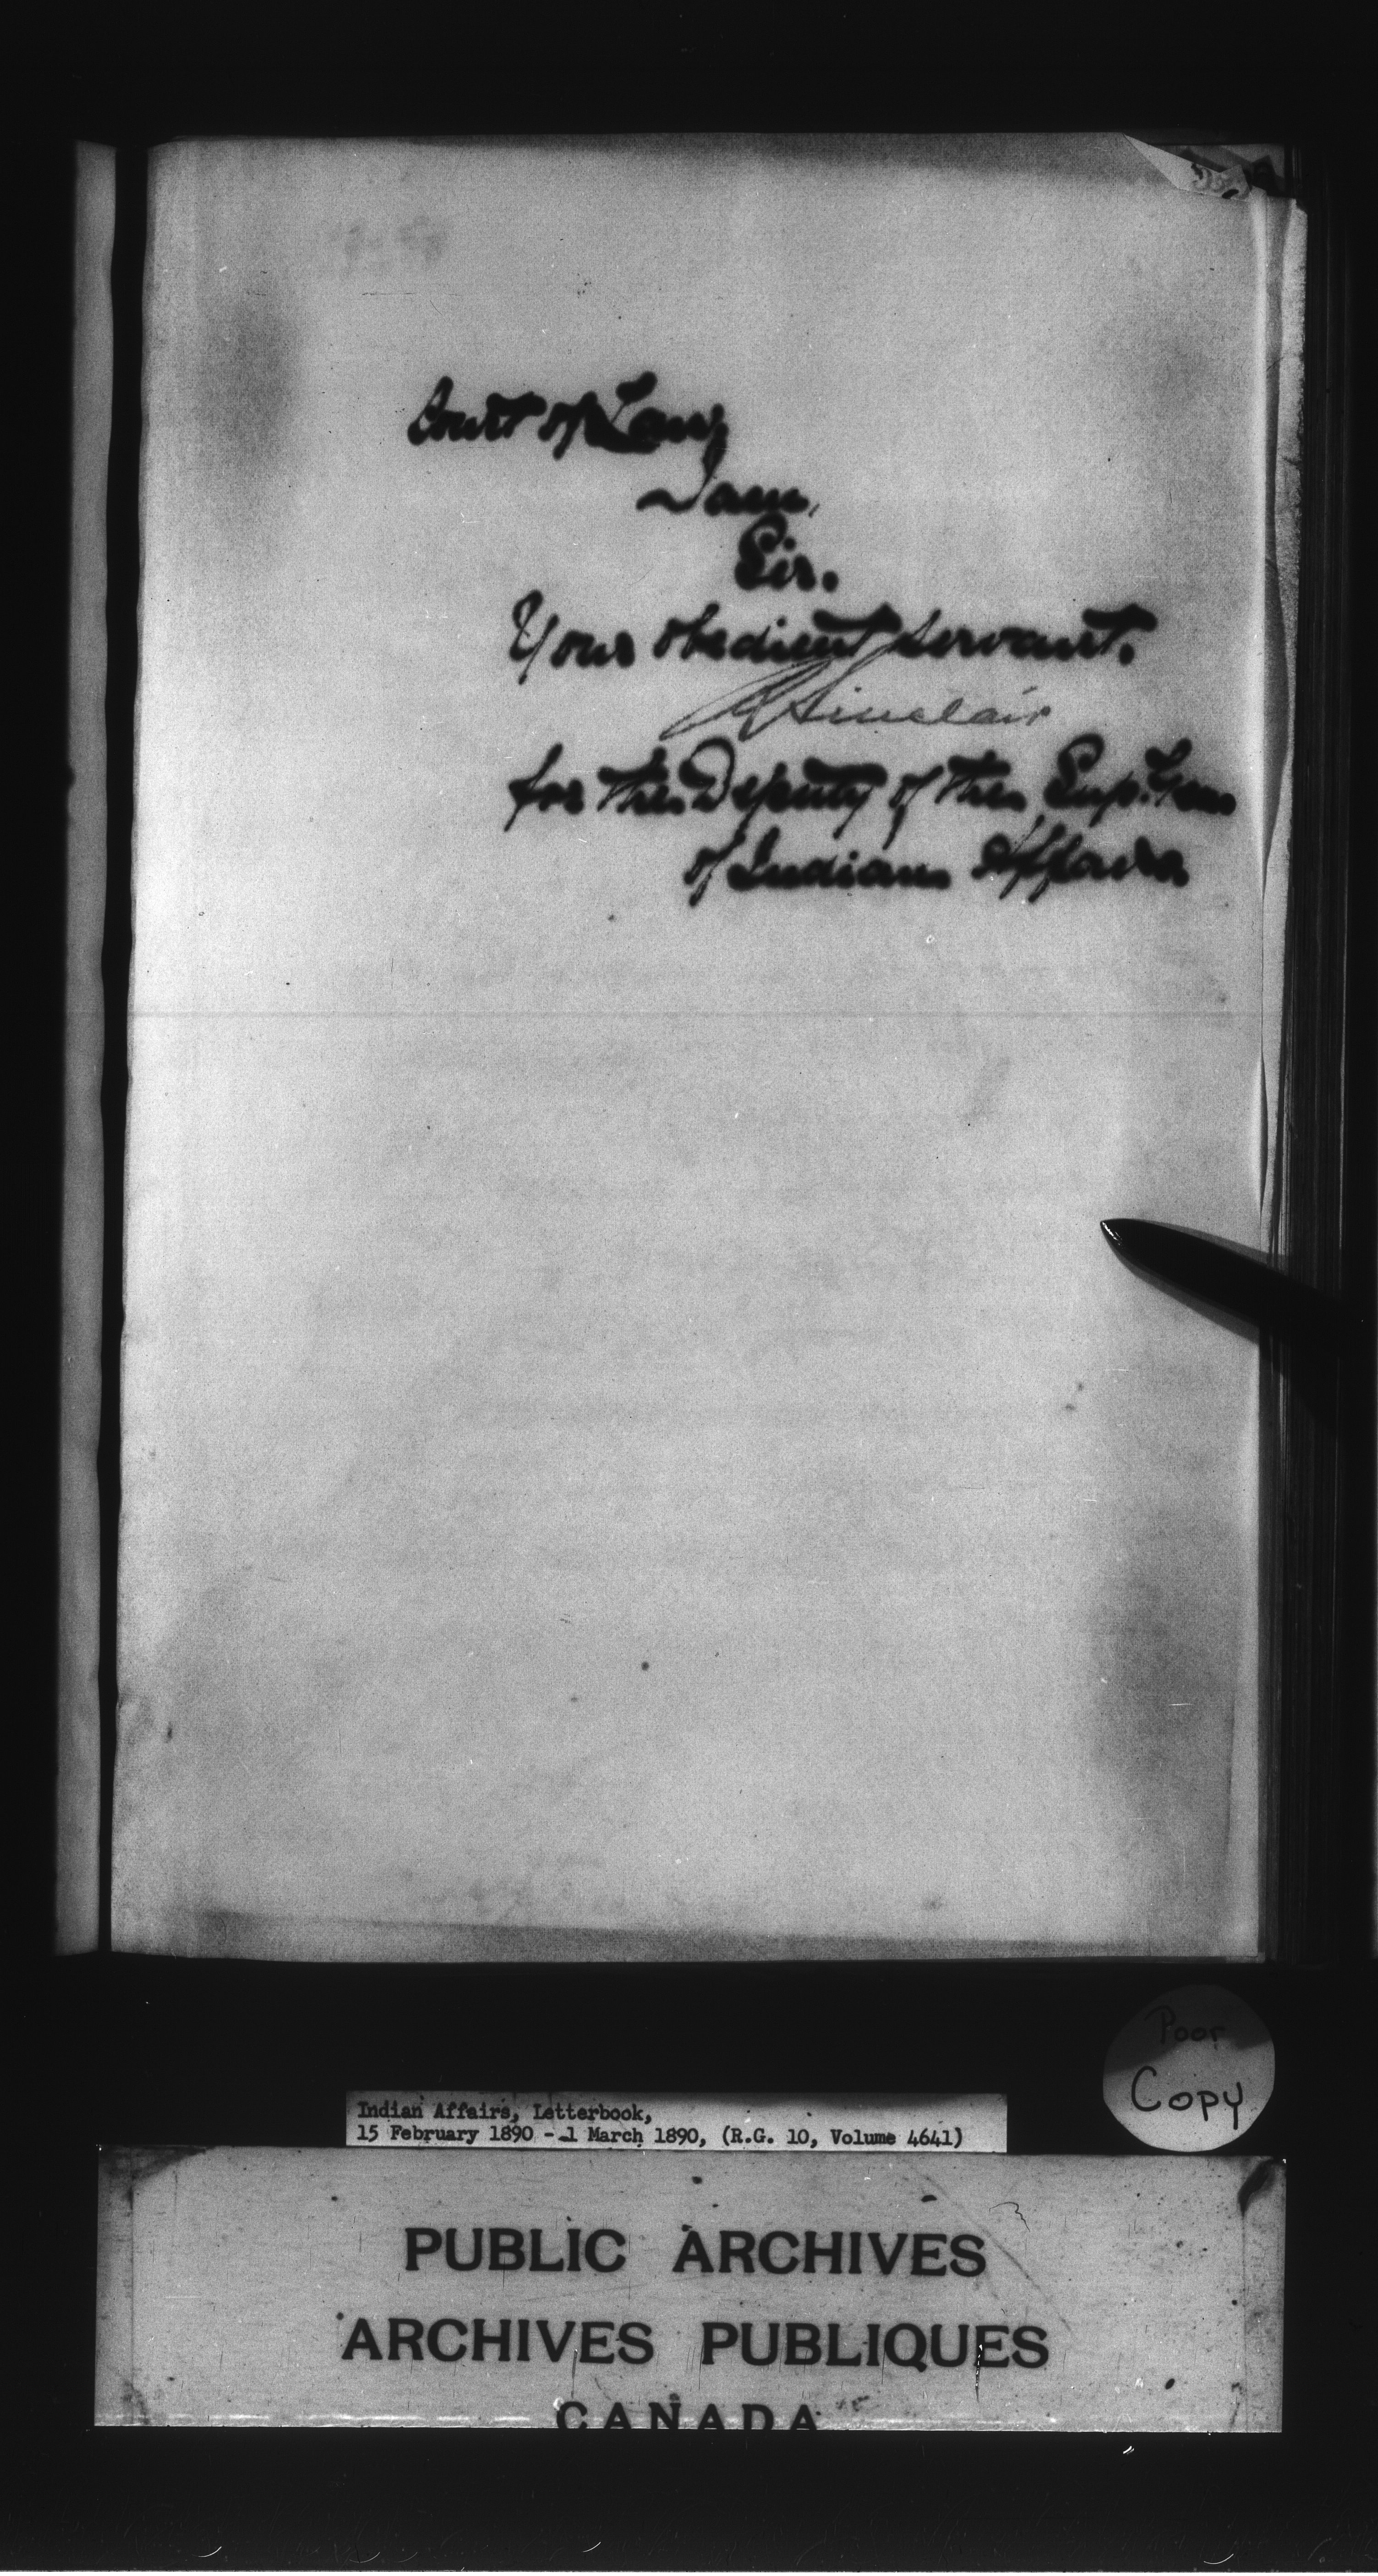 Court of Law,
I am,
Sir.
Your obedient servant.
R Sinclair
for the Deputy of the Sup. Gen
of Indian Affairs
Poor
Copy
Indian Affairs, Letterbook,
15 February 1890 - 1 March 1890, (R.G. 10, Volume 4641)
PUBLIC ARCHIVES
ARCHIVES PUBLIQUES
CANADA